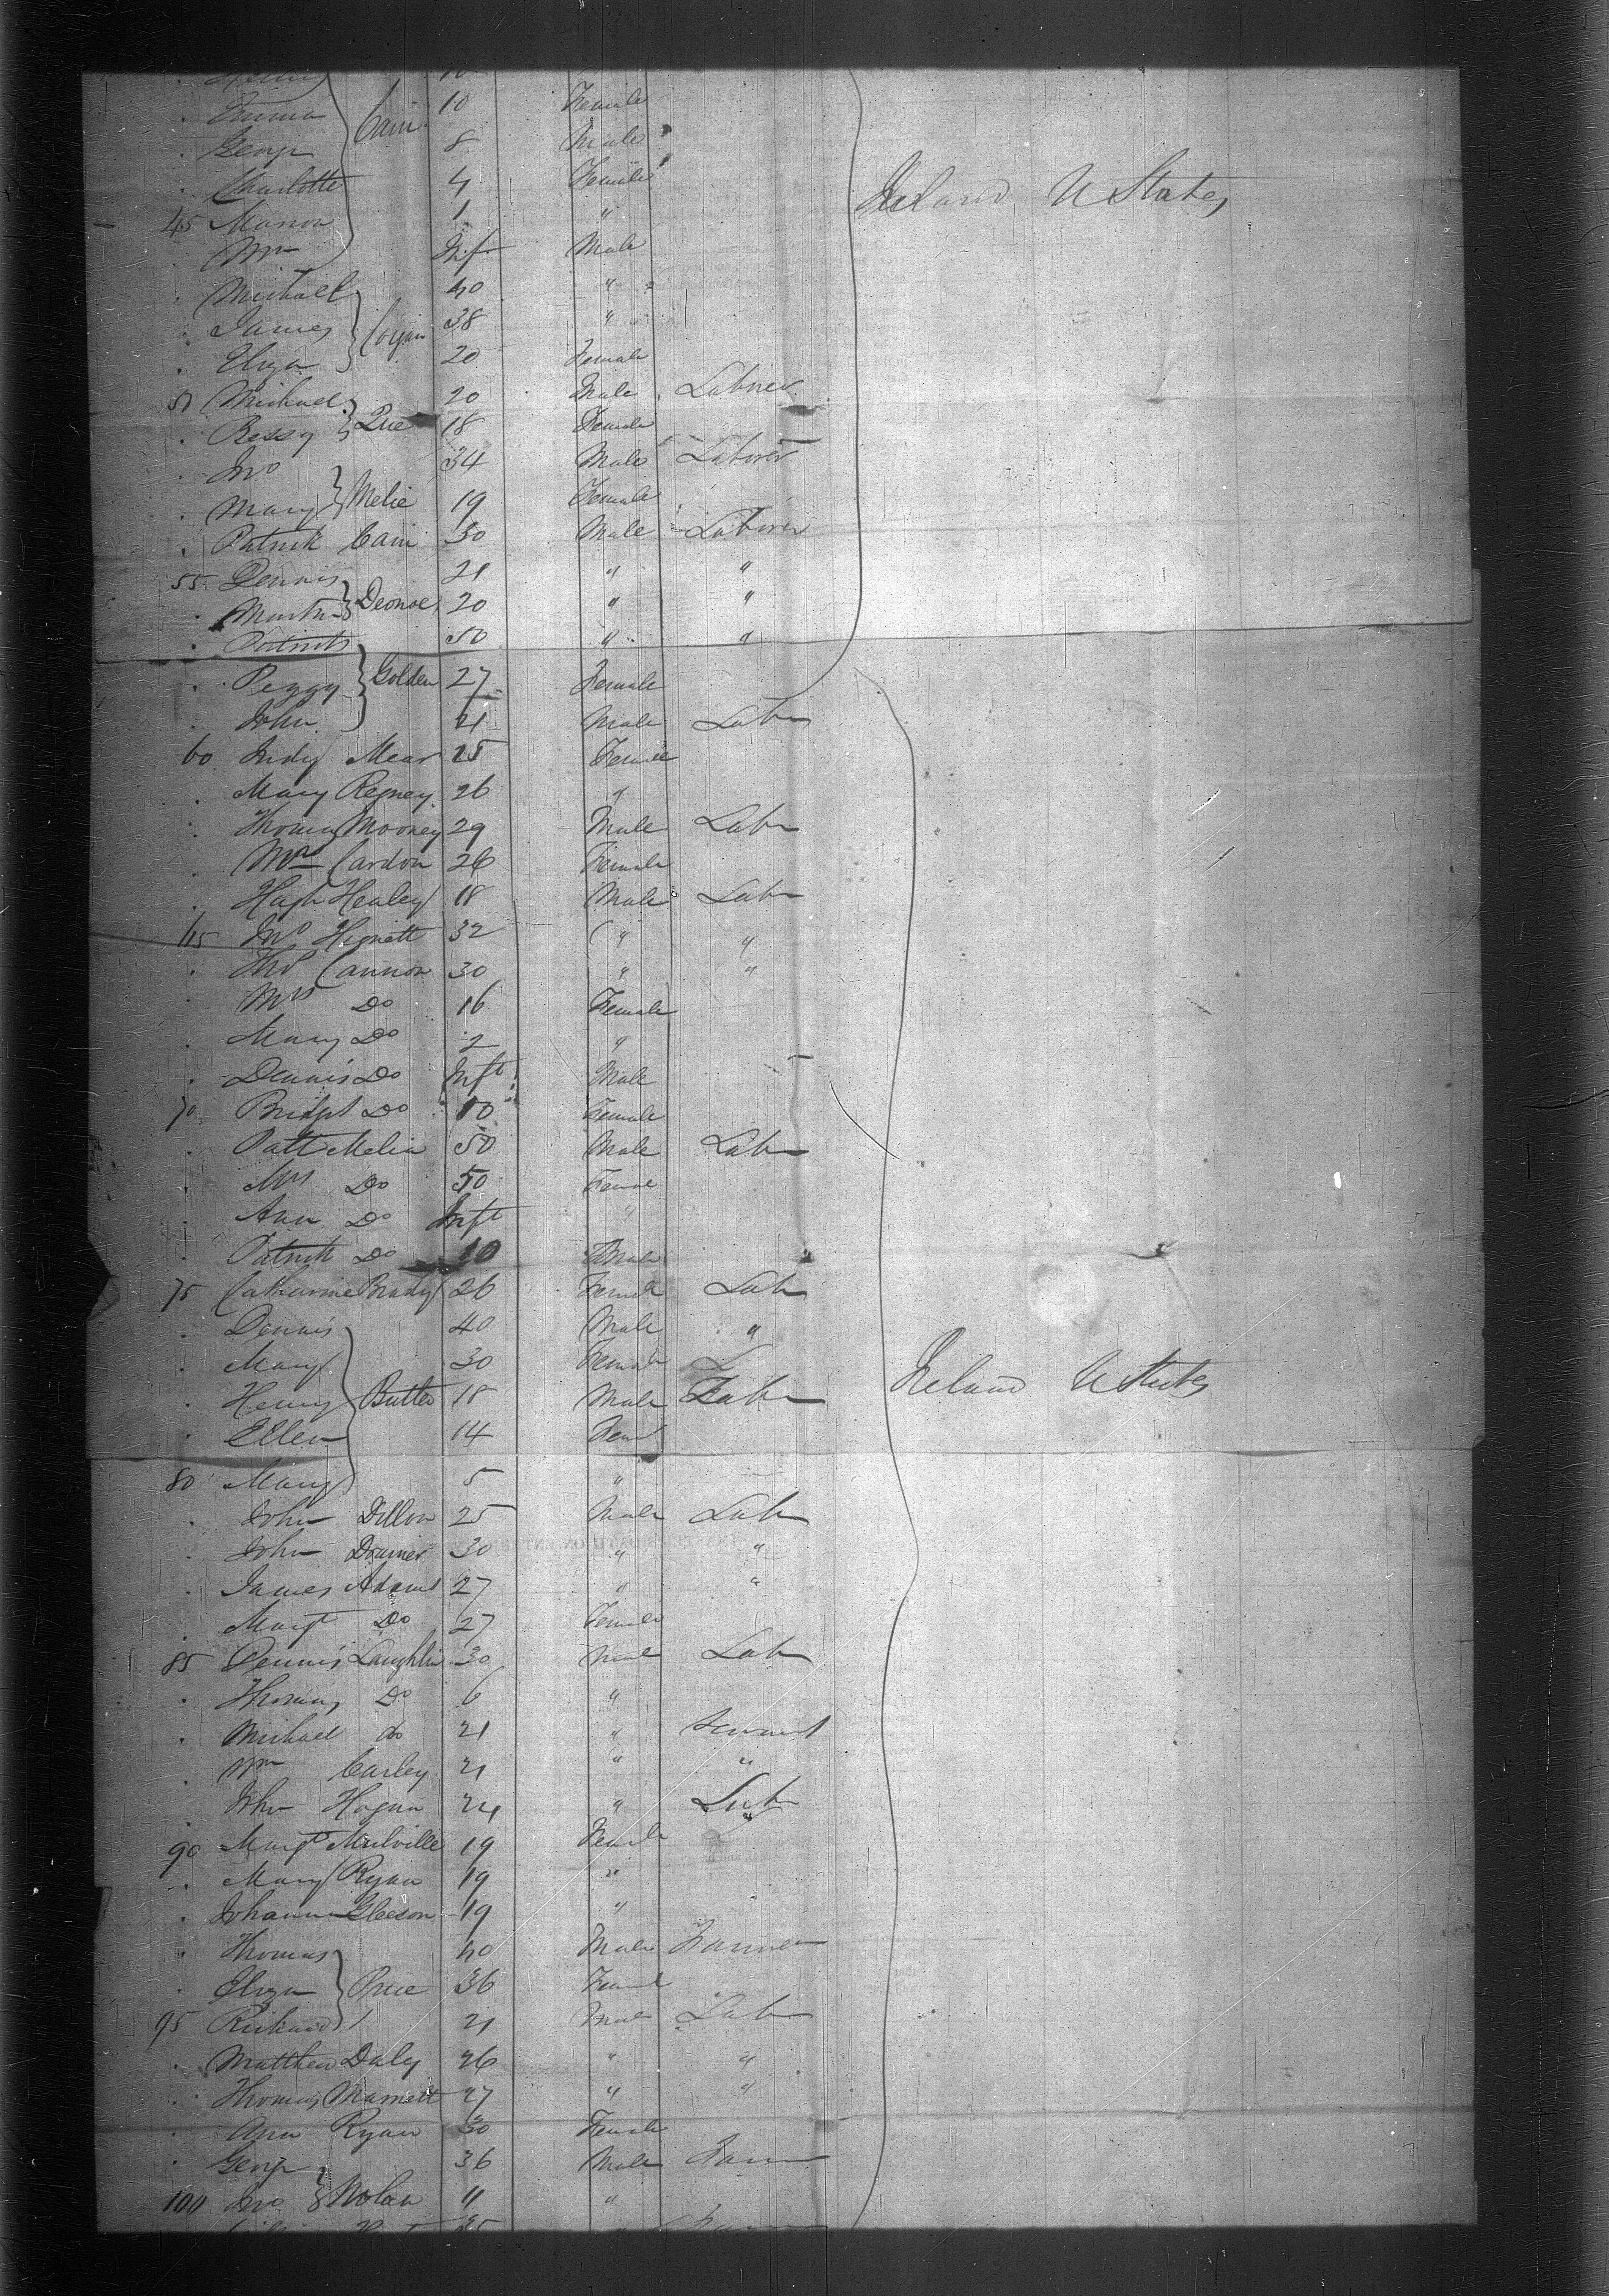 Emma 10 Female
George } Cain 8 Male
Charlotte 4 Female
45 Marion 1 "
Wm Inf Male
Michael 40 "
James } 38 "
Eliza 20 Female
50 Michael 20 Male Laborer
Bessy } 18 Female
Jno 34 Male Laborer
Mary } Melie 19 Female
Patrick Cain 30 Male Laborer
55 Dennis 21 " "
Martin } 20 " "
Patrick 50 " "
Peggy } Golden 27 Female
John 21 Male Labr
60 Judy Mear 25 Female
Mary Regney 26 "
Thomas Mooney 29 Male Labr
Mrs Cardon 26 Female
Hugh Healey 18 Male Labr
65 Jno Hignett 32 " "
Thos Cannon 30 " "
Mrs Do 26 Female
Mary Do 2 "
Dennis Do Inft Male
70 Bridget Do 10 Female
Patt Melia 50 Male Labr
Mrs Do 50 Female
Ann Do Inft "
Patrick Do 10 Male
75 Catharine Brady 26 Female Labr
Dennis 40 Male "
Mary 30 Female
Henry } Butler 18 Male Labr
Ellen 14 Fem
80 Mary 5 "
John Dillon 25 Male Labr
John 30 " "
James Adams 27 " "
Margt Do 27 Female
85 Dennis Laughlin 30 Male Labr
Thomas Do 6 "
Michael do 21 " Servant
Wm Carley 21 " "
John Hogan 24 " Labr
90 Margt Mulville 19 Female
Mary Ryan 19 "
Johanna Gleeson 19 "
Thomas 40 Male Farmer
Eliza } Price 36 Female
95 Richard 21 Male Labr
Matthew Daly 26 " "
Thomas 27 " "
Ann Ryan 30 Female
George 36 Male Farm
100 Jno } Nolan 11 "
Ireland U States
Ireland U States